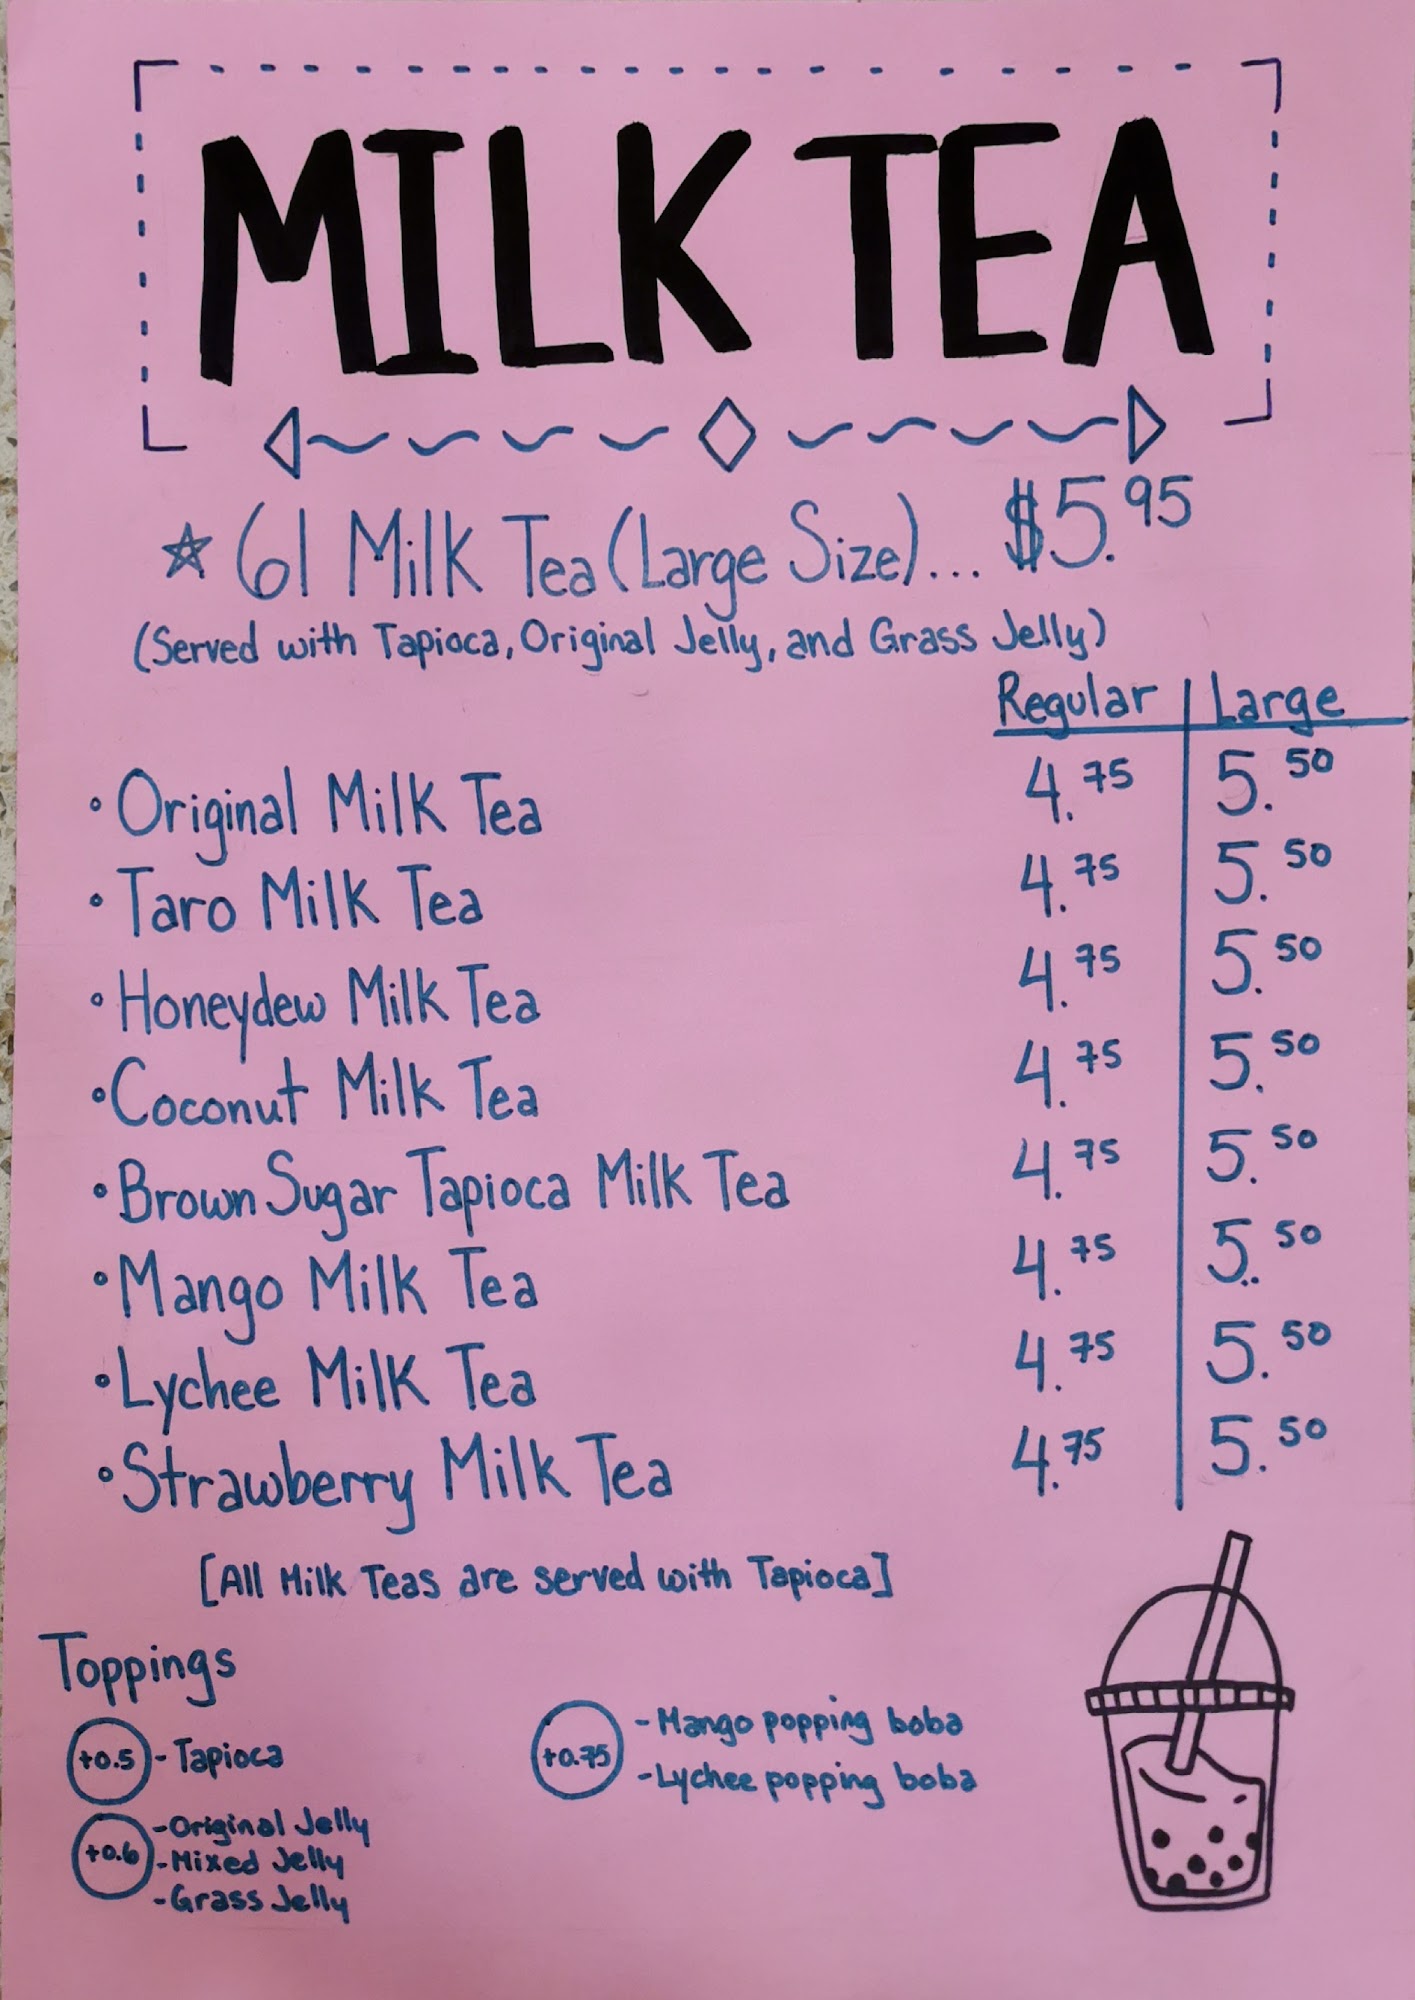 MILK TEA
☆ 61 Milk Tea (Large Size)... $5.95
(Served with Tapioca, Original Jelly, and Grass Jelly)
Regular | Large
• Original Milk Tea 4.75 5.50
• Taro Milk Tea 4.75 5.50
• Honeydew Milk Tea 4.75 5.50
• Coconut Milk Tea 4.75 5.50
• Brown Sugar Tapioca Milk Tea 4.75 5.50
• Mango Milk Tea 4.75 5.50
• Lychee Milk Tea 4.75 5.50
• Strawberry Milk Tea 4.75 5.50
[All Milk Teas are served with Tapioca]
Toppings
+0.5 - Tapioca
+0.6 - Original Jelly
- Mixed Jelly
- Grass Jelly
+0.75 - Mango popping boba
- Lychee popping boba